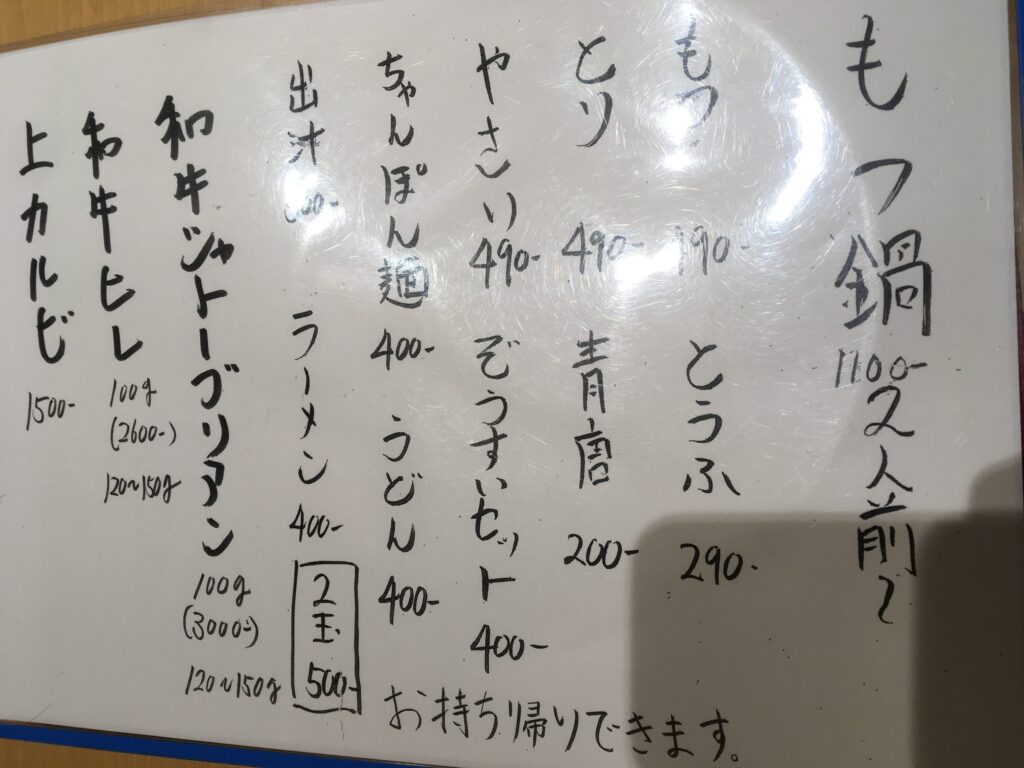 もつ鍋 1100- 2人前〜
もつ 490- とうふ 290-
とり 490- 青唐 200-
やさい 490- ぞうすいセット 400-
ちゃんぽん麺 400- うどん 400-
出汁 ラーメン 400- 2玉 500-
和牛シャトーブリアン 100g (3000-) 120〜150g
和牛ヒレ 100g (2600-) 120〜150g
上カルビ 1500-
お持ち帰りできます。